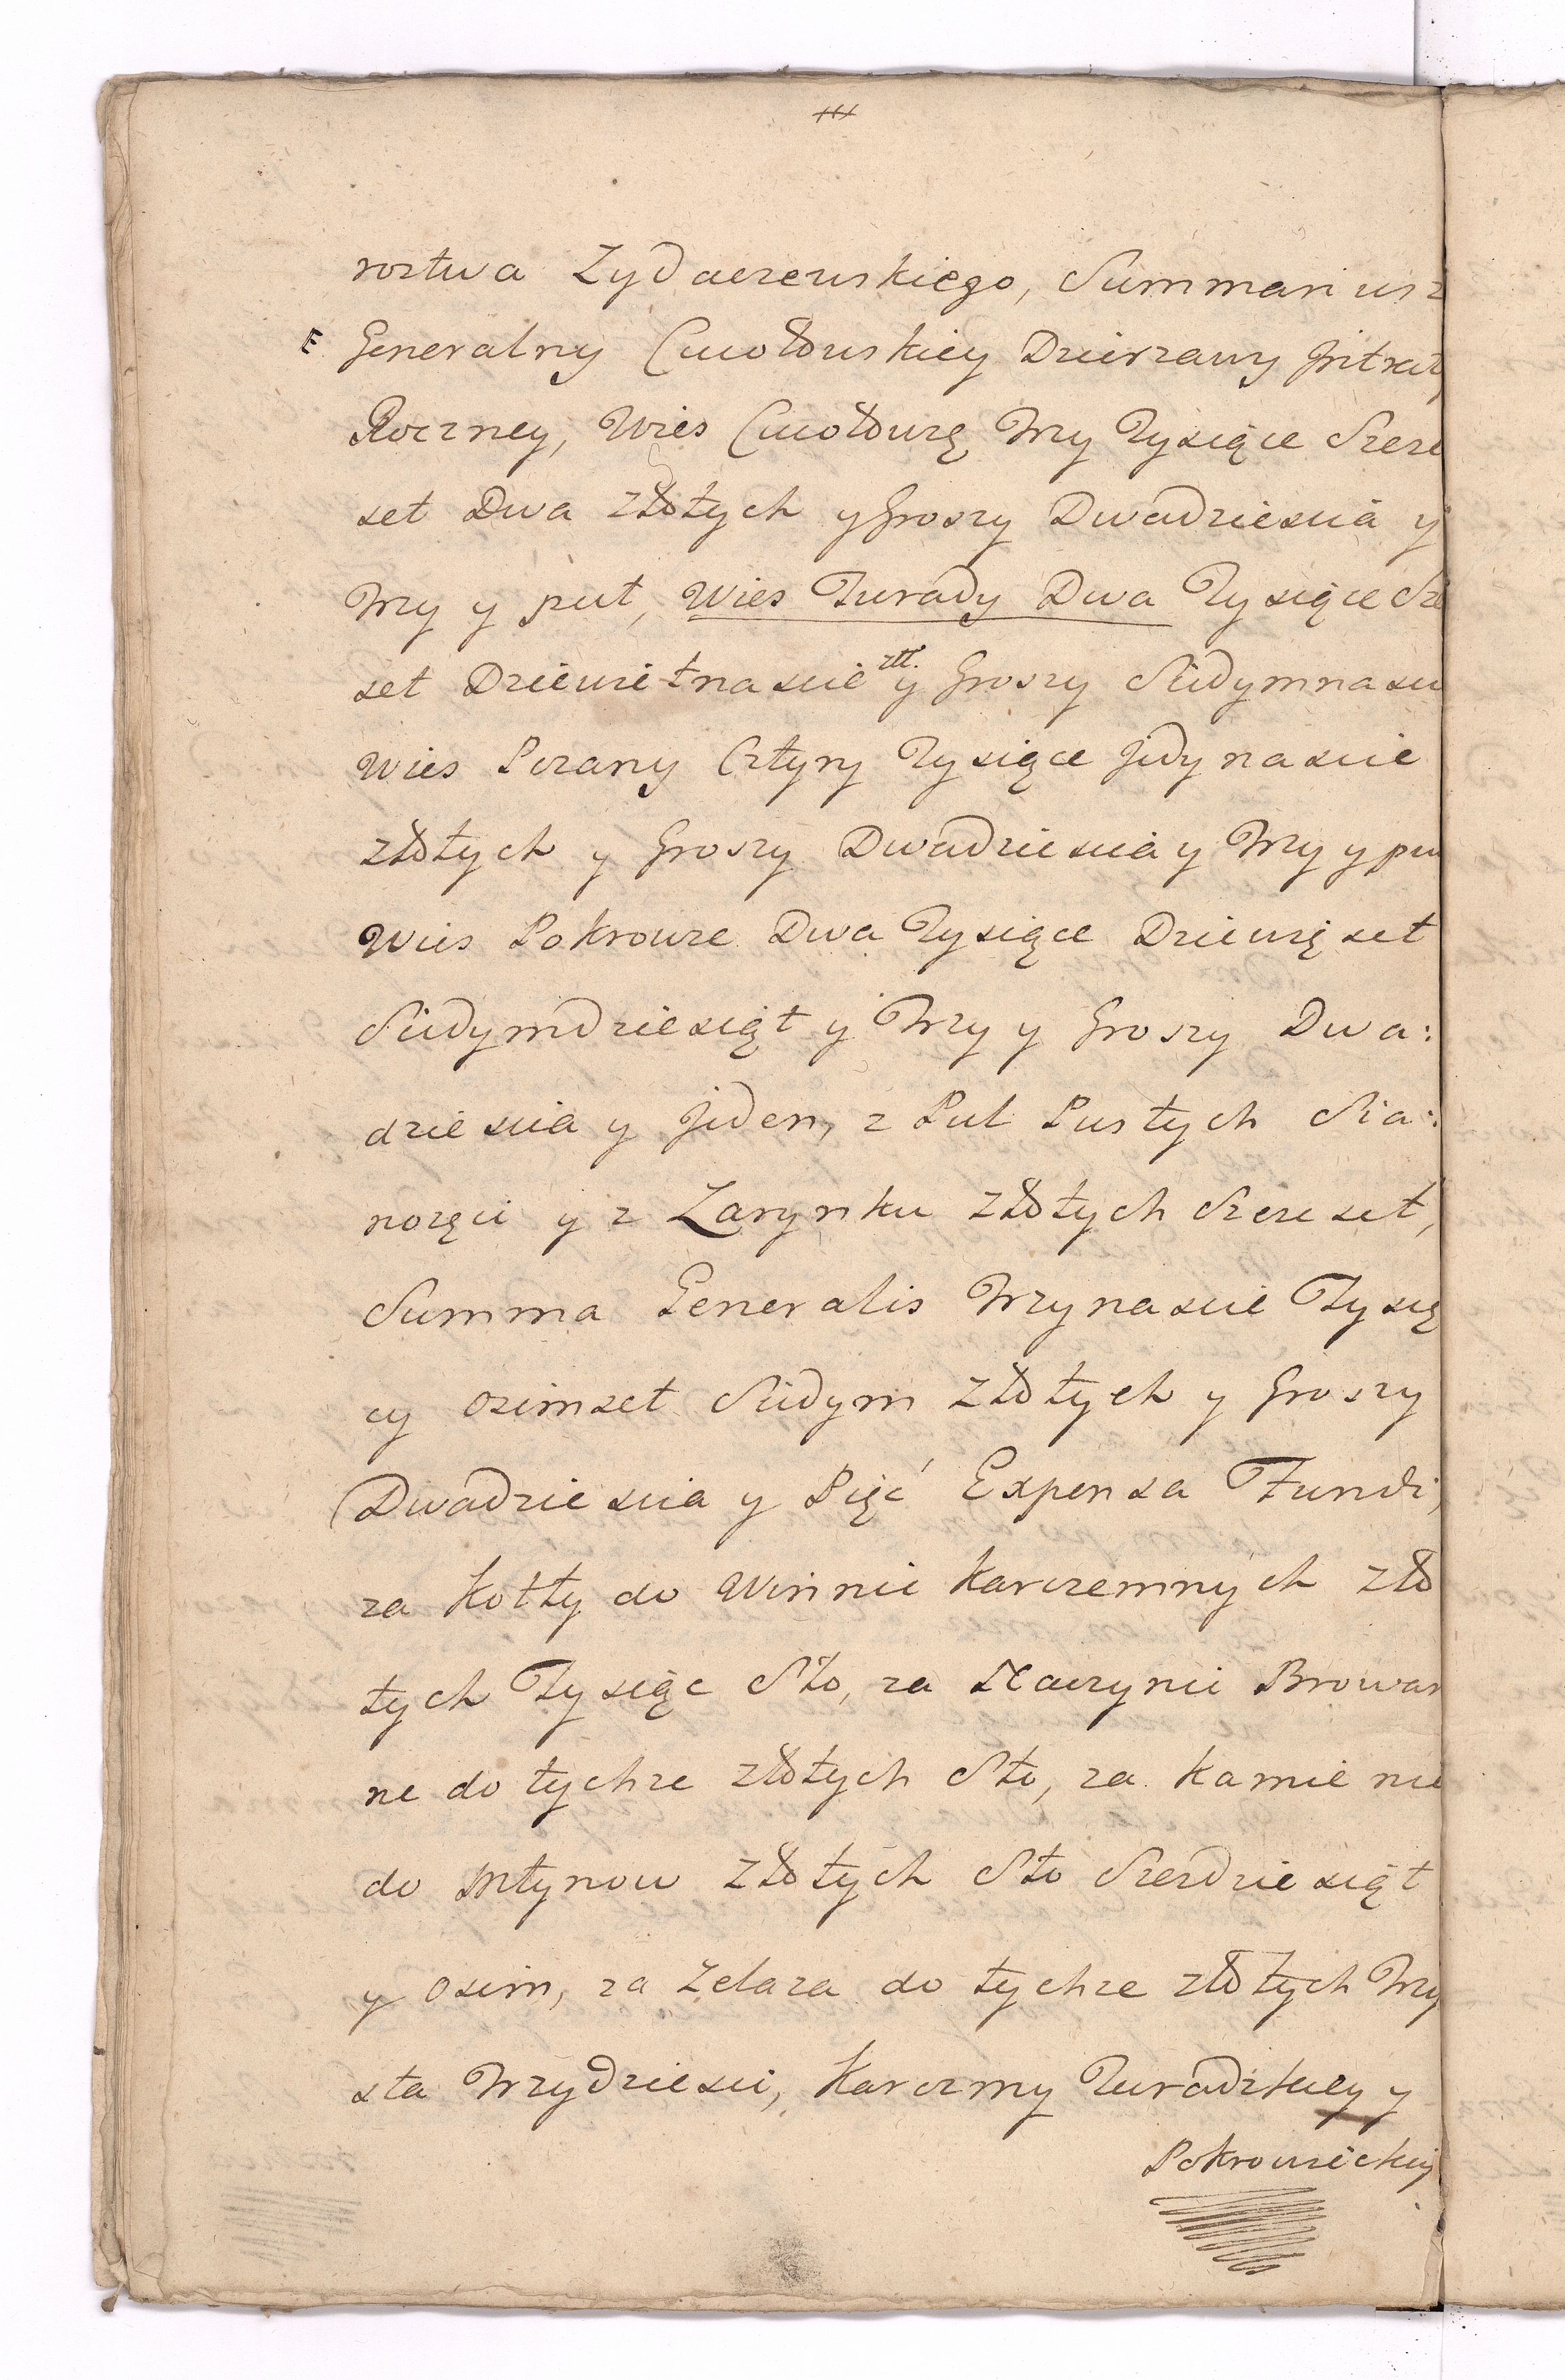 rostwa Zydaczewskiego, Summariusz
Generalny Cucołowskiey Dzierzawy Jntrat
Roczney, Wies Cucołowcę Trzy Tysiące Szesc
set Dwa Złotych y Groszy Dwadziescia y
Trzy y puł, Wies Turady Dwa Tysiące Sze
set Dziewietnascie złł. y Groszy Siedymnascie
Wies Pczany Cztyry Tysiące Jedynascie
złotych y Groszy Dwadziescia y Trzy y puł
Wies Pokrowce Dwa Tysiące Dziewięset
Siedymdziesiąt y Trzy y Groszy Dwa:
dziescia y Jeden, z Pul Pustych Sia:
nozęci y z Zarynku Złotych Szescset,
Summa Generalis Trzynascie Tysię
cy osimset Siedym Złotych y Groszy
Dwadziescia y Pięć Expensa Fundi,
za Kotły do Winnic Karczemnych zło
tych Tysiąc Sto, za Naczynie Browar
ne do tychze złotych Sto, za Kamienie
do Młynow Złotych Sto Szesdziesiąt
y Osim, za Zelaza do tychze złotych Trzy
sta Trzydziesci, Karczmy Turadzkiey y
Pokrowieckiey